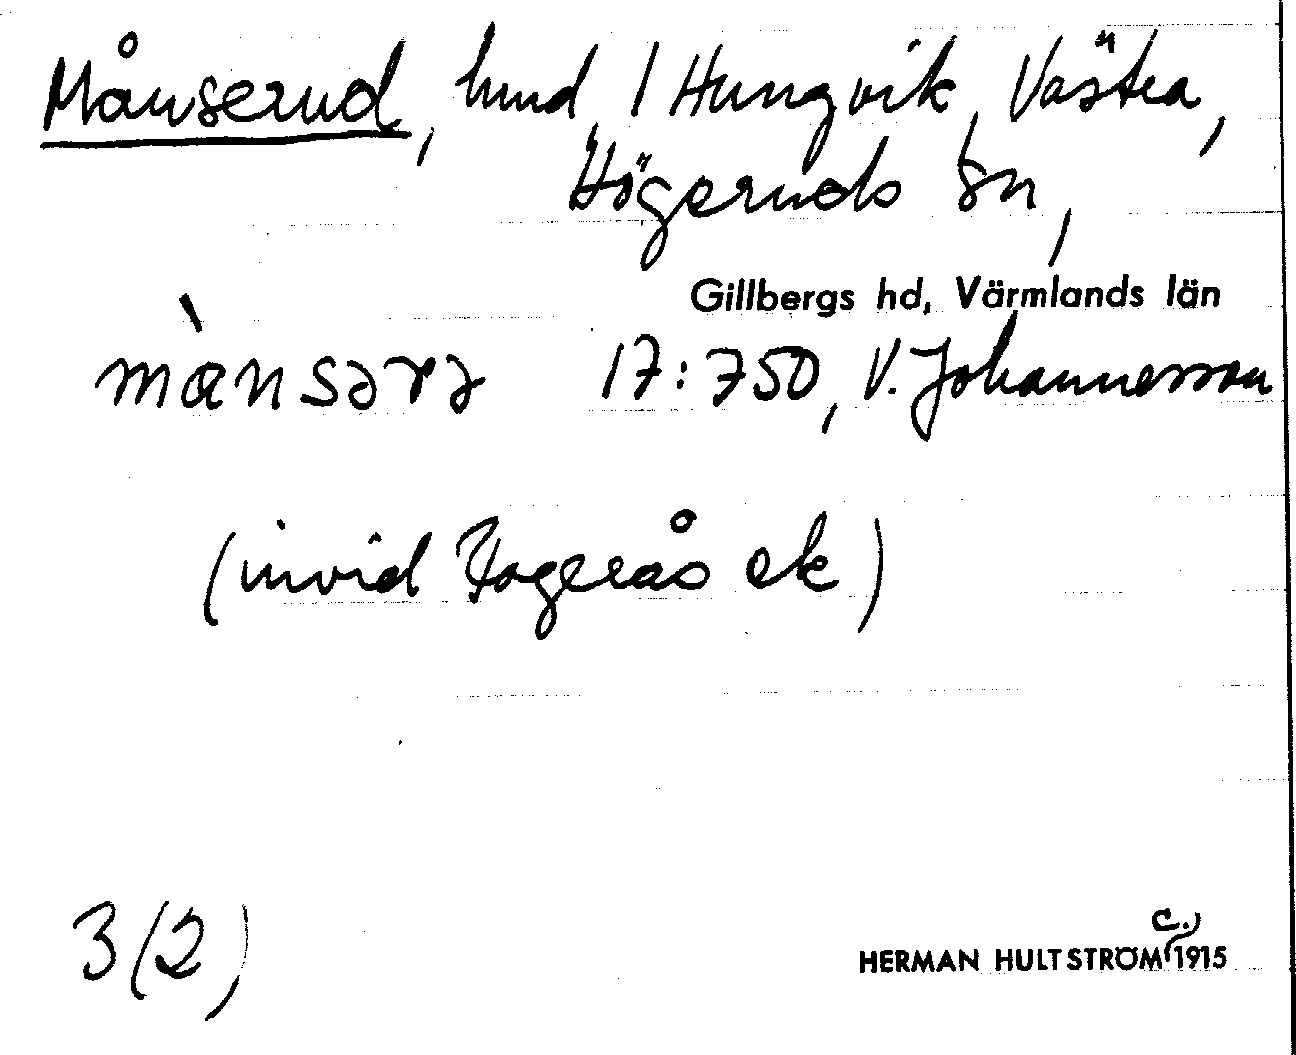 Månserud, hmd, / Hungvik, Västra,
Högeruds sn,
Gillbergs hd, Värmlands län
mànsərə 17:750, V. Johannesson
(invid Hogerås ek)
3(2)
c.
HERMAN HULTSTRÖM 1915